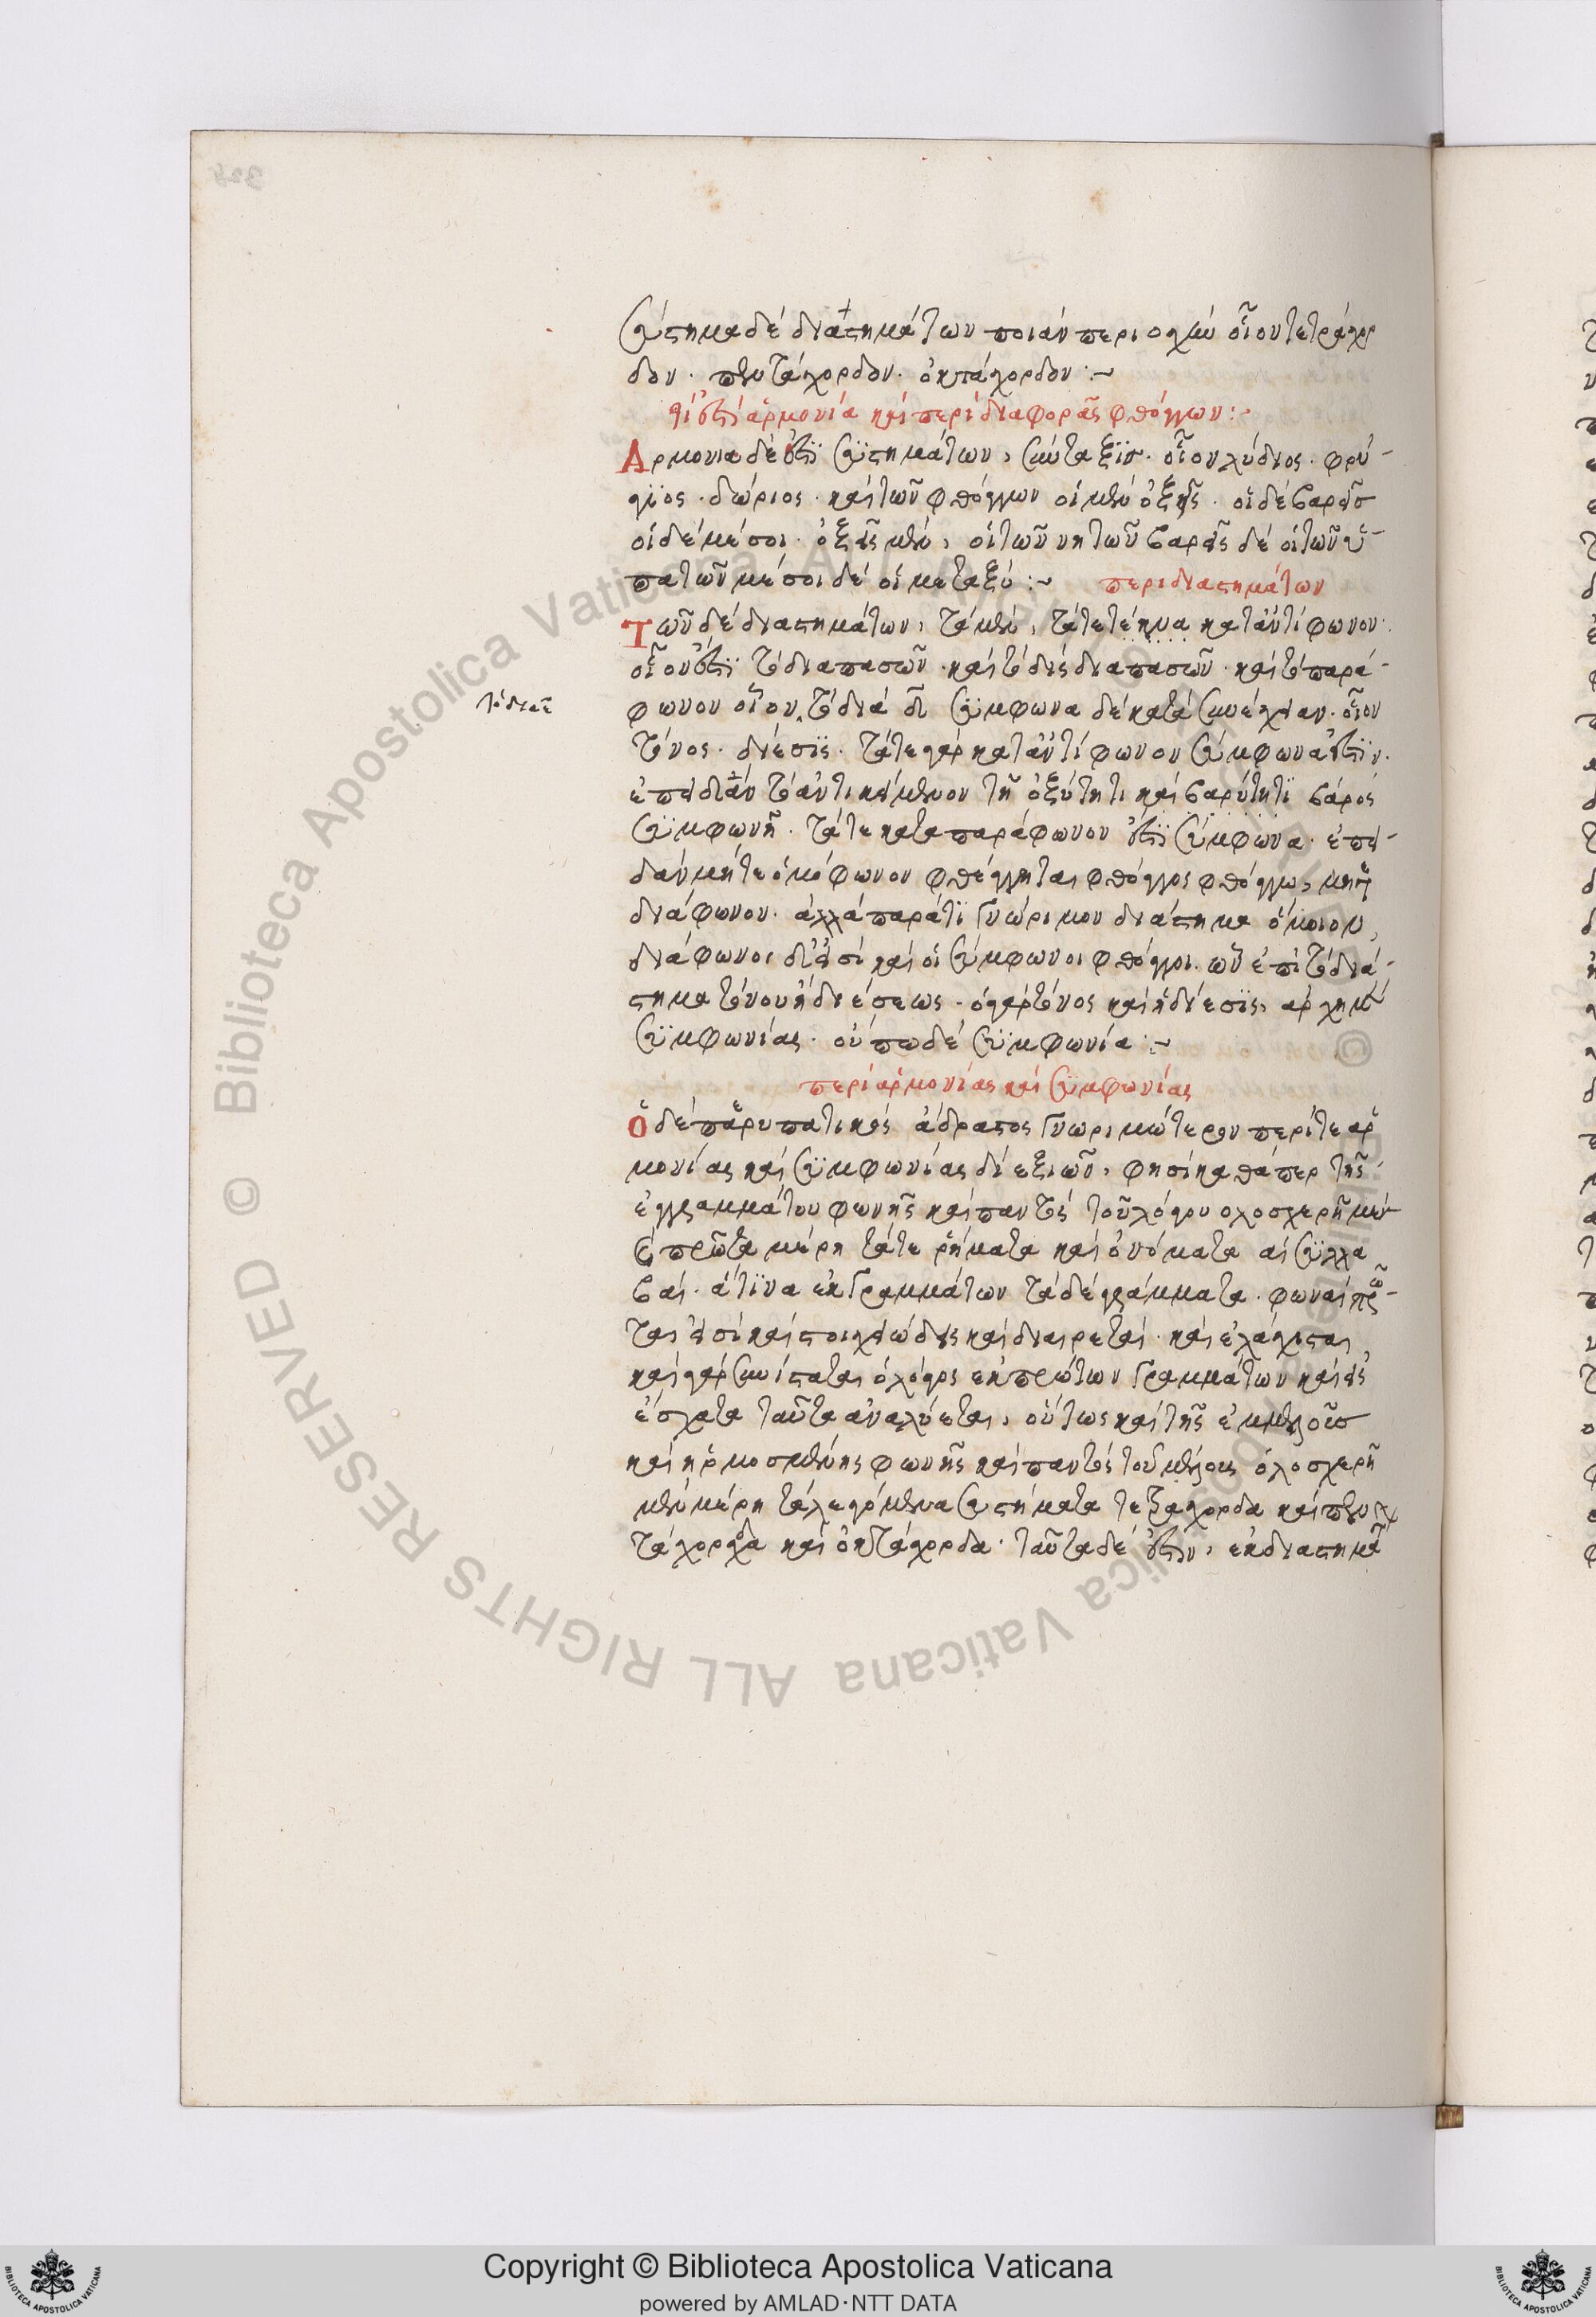 σύστημα δέ διαστημάτων ποιάν περιοχήν οἷον τετράχορ
δον. πεντάχορδον. ὀκτάχορδον :~
τί ἐστιν ἁρμονία καί περί διαφορᾶς φθόγγων :~
Αρμονια δέ ἐστϊ συϊστημάτων, σύνταξϊς. οἷον λύδιος. φρύ-
γϊος. δώριος. καί τῶν φθόγγων οἱ μέν ὀξεῖς. οἱ δέ βαρεῖς
οἱ δέ μέσοι. ὀξεῖς μέν, οἱ τῶν νητῶν βαρεῖς δέ οἱ τῶν ὑ-
πατῶν μέσοι δέ οἱ μεταξύ :~ περι διαστημάτων
Τῶν δέ διαστημάτων, τά μέν, τά τε τέημα κατἀντίφωνον.
οἷον ἐστϊ τό διαπασῶν. καί τό δίς διαπασῶν. καί τό παρά-
φωνον οἷον τό διά δ σύμφωνα δέ κατά συνέχειαν. οἷον
τόνος. δίεσϊς. τά τε γάρ κατἀντίφωνον σύμφωνα ἐστϊν.
ἐπειδάν τό ἀντικείμενον τῇ ὀξύτητι καί βαρύτητϊ βάρος
συμφωνῇ. τά τε κατα παράφωνον ἐστϊ σύμφωνα. ἐπει-
δάν μήτε ὁμόφωνον φθέγγηται φθόγγος φθόγγω, μητε
διάφωνον. ἀλλά παράτϊ γνώριμον διάστημα ὅμοιον,
διάφωνοι δ'εἰσί καί οἱ σύμφωνοι φθόγγοι. ὧν ἐπί τό διά-
στημα τόνου ἢ διέσεως. ὁ γάρ τόνος καί ἡ δίεσϊς, ἀρχή μέν
συμφωνίας. οὔπω δέ συμφωνία :~
περί αρμονίας καί συμφωνίας
Ὁ δέ παρυπατικός ἄδραστος γνωριμώτερον περί τε αρ
μονίας καί συμφωνίας διεξιῶν, φησί καθάπερ τῆς
ἐγγραμμάτου φωνῆς καί παντός τοῦ λόγου ολοσχερῆ μέν
καί πρῶτα μέρη τάτε ῥήματα καί ὀνόματα αἱ συλλα
βαί. ἅτϊνα ἐκ γραμμάτων τά δέ γράμματα. φωναί πρῶ-
ται εἰσί καί στοιχειώδεις καί διαιρεταί. καί ἐλάχισται,
καί γάρ συνίσταται ὁ λόγος ἐκ πρώτων γραμμάτων καί εἰς
ἔσχατα ταῦτα ἀναλύεται, οὕτως καί τῆς ἐμμελοῦς
καί ηρμοσμένης φωνῆς καί παντός τοῦ μέλους ὁλοσχερῆ
μέν μέρη τά λεγόμενα συστήματα τετράχορδα καί πεν
τάχορδα καί ὀκτάχορδα. ταῦτα δέ ἐστιν, ἐκ διαστημά